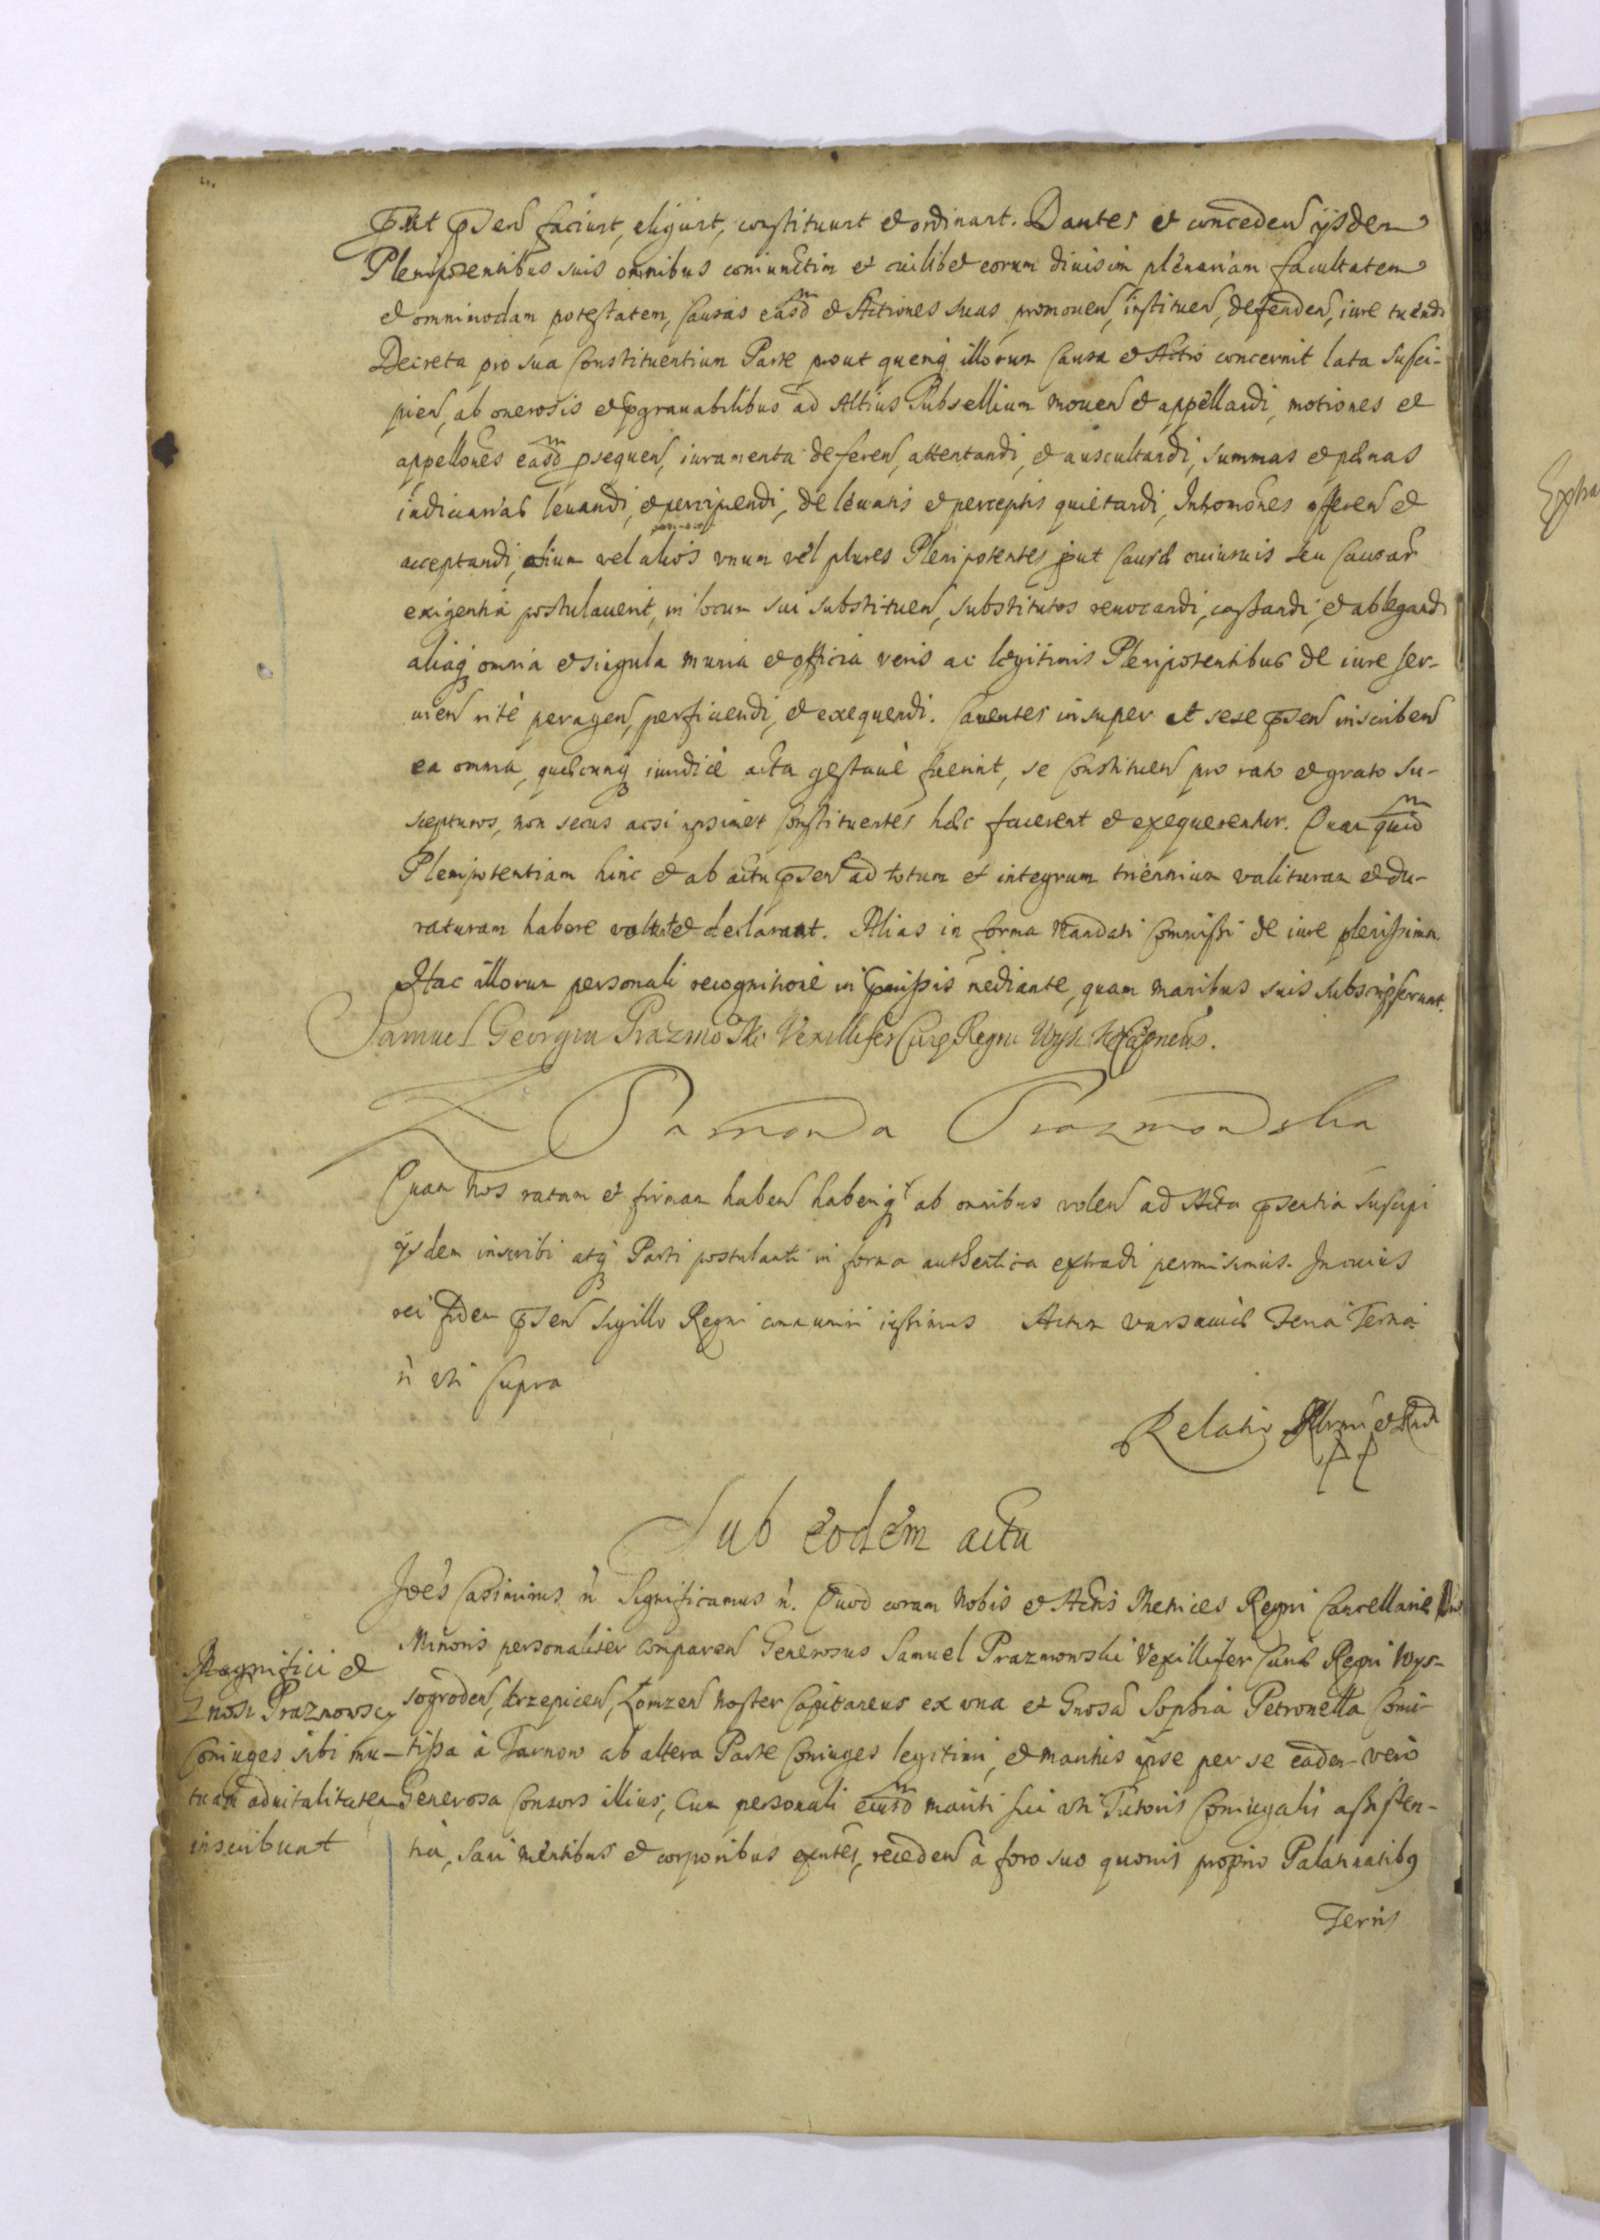 put pnsen faciunt, eligunt, constituunt et ordinant. Dantes et conceden ijsdem
Plenipotentibus suis omnibus coniunctim et cuilibet eorum diuisim plenariam facultatem
et omnimodam potestatem, Causas easd et Actiones suas promouen, instituen, defenden, iure tuendi
Decreta pro sua Constituentium Parte prout quemq illorum Causa et Actio concernit lata susci-
pien, ab onerosis et pgrauabilibus ad Altius Subsellium mouen et appellandi, motiones et
appellones easd psequen, iuramenta deferen, attentandi, et auscultandi, summas et poenas
iudiciarias leuandi, et percipiendi, de leuatis et perceptis quietandi, Inhomones offeren et
acceptandi, alium vel alios vnum vel plures Plenipotentes put Causae cuiusuis seu Causar
exigentia postulauerit, in locum sui substituen, substitutos reuocandi, cassandi, et ablegandi
aliaq omnia et singula munia et officia veris ac legitimis Plenipotentibus de iure ser-
uien rite peragen, perficiendi, et exequendi. Cauentes insuper et sese pnsen inscriben
ea omnia, quaecunq iuridice acta gestaue fuerint, se Constituen pro rato et grato su-
scepturos, non secus acsi ipsimet Constituentes haec facerent et exequerentur. Quam quid
Plenipotentiam hinc et ab actu pnsen ad totum et integrum triennium valituram et du-
raturam habere volunt et declarant. Alias in forma Mandati Commissi de iure plenissima
Hac illorum personali recognitione in praemissis mediante, quam manibus suis subscripserunt.
Samuel Georgius Prazmoski Vexillifer Curiae Regni Wys
Z Tarnowa Prazmowska
Quam Nos ratam et firmam haben haberiq ab omnibus volen ad Acta pnsentia suscipi
ijsdem inscribi atq Parti postulanti in forma authentica extradi permisimus. In cuius
rei fidem pnsen Sigillo Regni communiri iussimus Actum Varsauiae Feria Tertia
ut uti Supra
Relatio
Sub eodem actu
Joes Casimirus Significamus. Quod coram Nobis et Actis Metrices Regni Cancellariae
Minoris personaliter comparen Generosus Samuel Prazmowski Vexillifer Curiae Regni Wys-
sogroden, Krzepicen, Lomzen Noster Capitaneus ex vna et Gnosa Sophia Petronella Comi-
tissa à Tarnow ab altera Parte Coniuges legitimi, et maritus ipse per se eadem vero
Generosa Consors illius, Cum personali eiusd mariti sui uti Tutoris Coniugalis assisten-
tia, sani mentibus et corporibus exntes, receden à foro suo quouis proprio Palatinatibq
Terris
Magnifici et
Gnosi Prazmowscy
Coniuges sibi mu-
tuam aduitalitatem
inscribunt